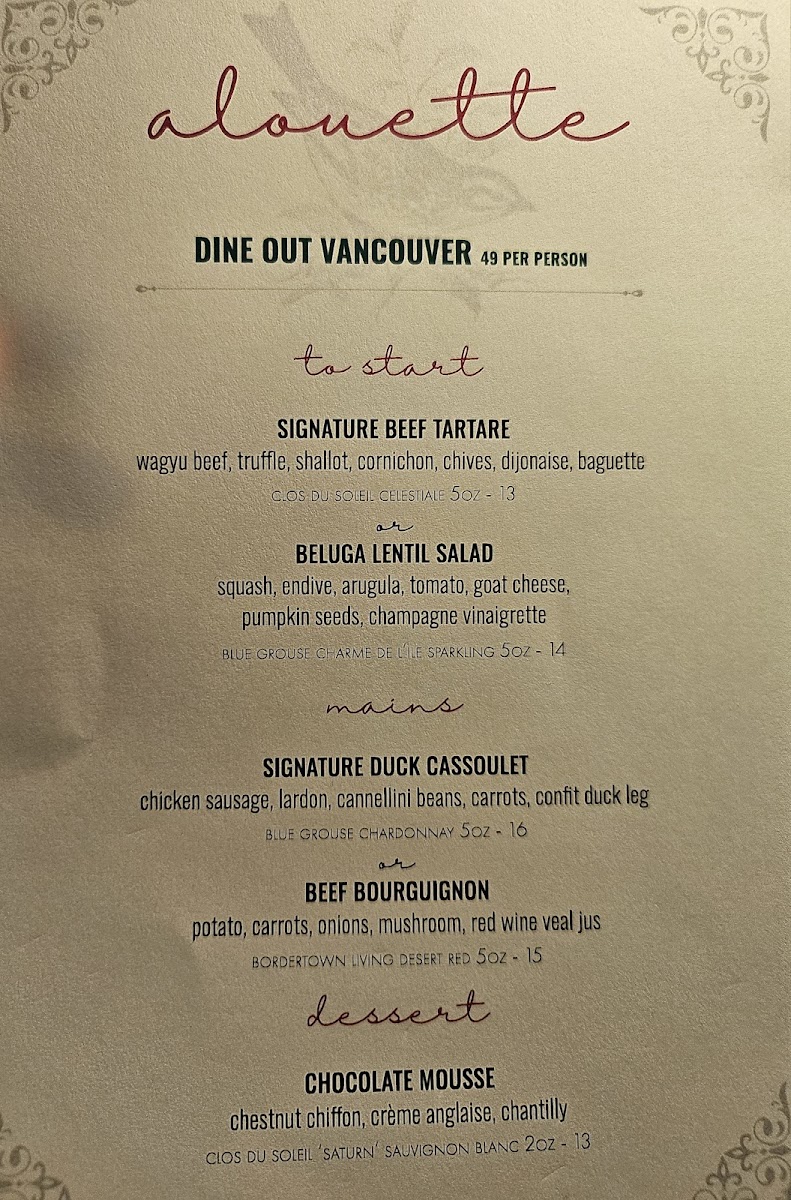 alouette
DINE OUT VANCOUVER 49 PER PERSON
to start
SIGNATURE BEEF TARTARE
wagyu beef, truffle, shallot, cornichon, chives, dijonaise, baguette
CLOS DU SOLEIL CELESTIALE 5OZ - 13
or
BELUGA LENTIL SALAD
squash, endive, arugula, tomato, goat cheese,
pumpkin seeds, champagne vinaigrette
BLUE GROUSE CHARME DE L'ÎLE SPARKLING 5OZ - 14
mains
SIGNATURE DUCK CASSOULET
chicken sausage, lardon, cannellini beans, carrots, confit duck leg
BLUE GROUSE CHARDONNAY 5OZ - 16
or
BEEF BOURGUIGNON
potato, carrots, onions, mushroom, red wine veal jus
BORDERTOWN LIVING DESERT RED 5OZ - 15
dessert
CHOCOLATE MOUSSE
chestnut chiffon, crème anglaise, chantilly
CLOS DU SOLEIL 'SATURN' SAUVIGNON BLANC 2OZ - 13